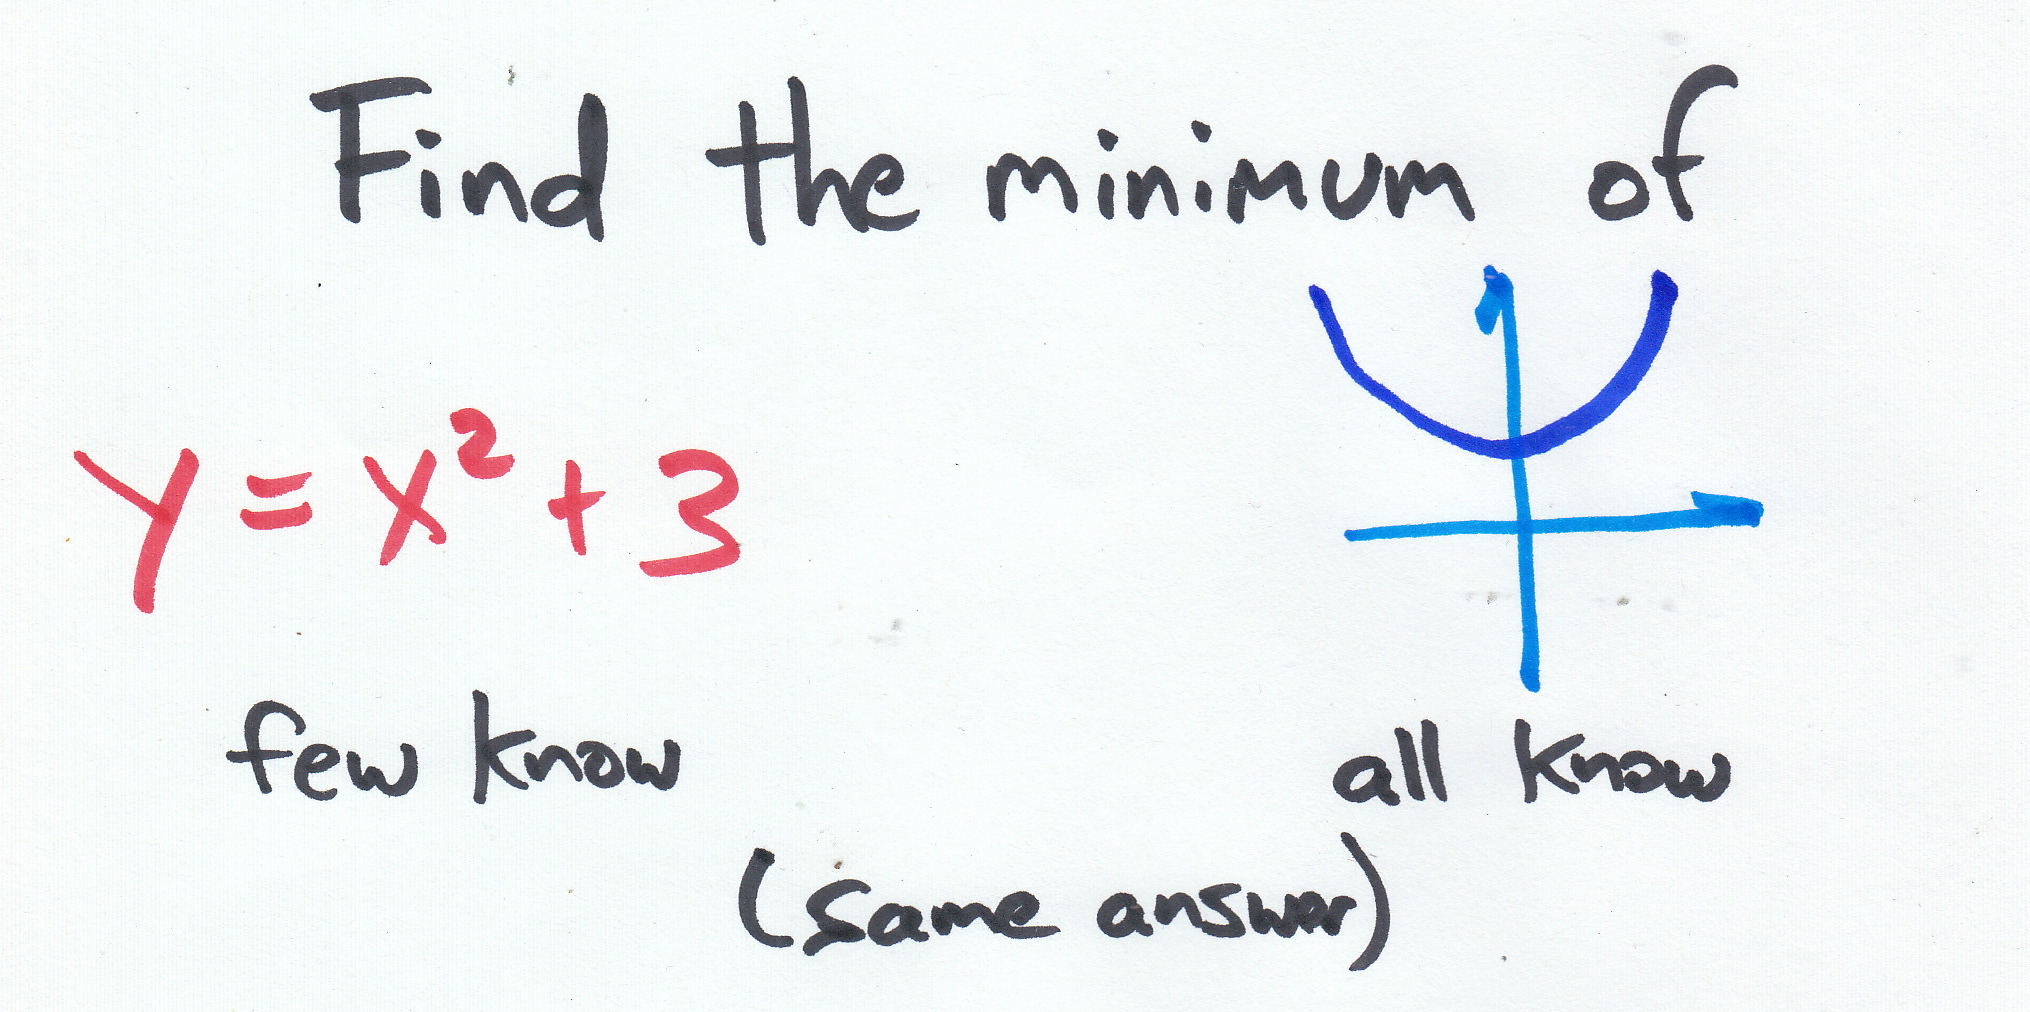 Find the minimum of
y = x² + 3
few know
all know
(same answer)